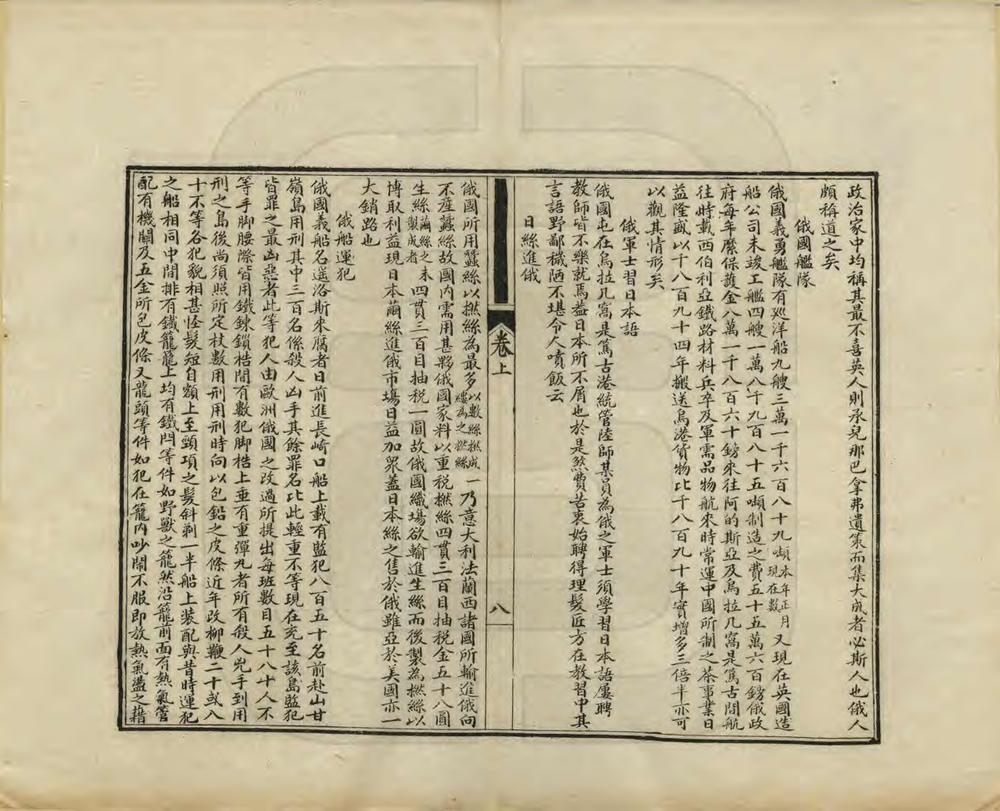 政治家中均稱其最不喜英人則承兒那巴拿弗遺策而集大成者必斯人也俄人
頗稱道之矣
俄國艦隊
俄國義勇艦隊有巡洋船九艘三萬一千六百八十九噸本年正月現在數又現在英國造
船公司未竣工艦四艘一萬八千九百八十五噸制造之費五十五萬六百鎊俄政
府每年縻保護金八萬一千八百六十鎊來往阿的斯亞及烏拉几窩是篤古間航
往時載西伯利亞鐵路材料兵卒及軍需品物航來時常運中國所制之茶事業日
益隆盛以十八百九十四年搬送烏港貨物比千八百九十年實增多三倍半亦可
以觀其情形矣
俄軍士習日本語
俄國屯在烏拉几窩是篤古港統管陸師某員為俄之軍士須學習日本語屢聘
教師皆不樂就焉蓋日本所不屑也於是煞費苦衷始聘得理髮匠方在教習中其
言語野鄙穢陋不堪令人噴飯云
日絲進俄
卷上
八
俄國所用蠶絲以撚絲為最多以數絲撚成縷為之撚絲一乃意大利法蘭西諸國所輸進俄向
不產蠶絲故國內需用甚夥俄國家料以重稅撚絲四貫三百目抽稅金五十八圓
生絲繭絲之未製成者四貫三百目抽稅一圓故俄國織場欲輸進生絲而後製為撚絲以
博取利益現日本繭絲進俄市場日益加眾蓋日本絲之售於俄雖亞於美國亦一
大銷路也
俄船運犯
俄國義船名遥洛斯來腐者日前進長崎口船上載有監犯八百五十名前赴山甘
嶺島用刑其中三百名係殺人凶手其餘罪名比此輕重不等現在充至該島監犯
皆罪之最凶惡者此等犯人由歐洲俄國之改過所提出每班數目五十八十人不
等手脚腰際皆用鐵鍊鎖梏間有數犯脚梏上垂有重彈丸者所有殺人兇手到用
刑之島後尚須照所定杖數用刑用刑時向以包鉛之皮條近年改柳鞭二十或八
十不等各犯貌相甚怪髮短自額上至頸項之髮斜剃一半船上裝配與昔時運犯
之船相同中間排有鐵籠籠上均有鐵閂等件如野獸之籠然沿籠前面有熱氣管
配有機關及五金所包皮條又龍頭等件如犯在籠內吵鬧不服即放熱氣盪之藉